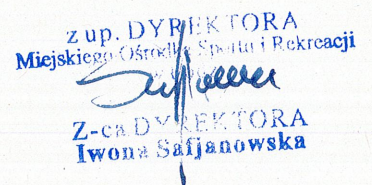 z up. DYREKTORA
Miejskiego Ośrodka Sportu i Rekreacji
Z-ca DYREKTORA
Iwona Safjanowska